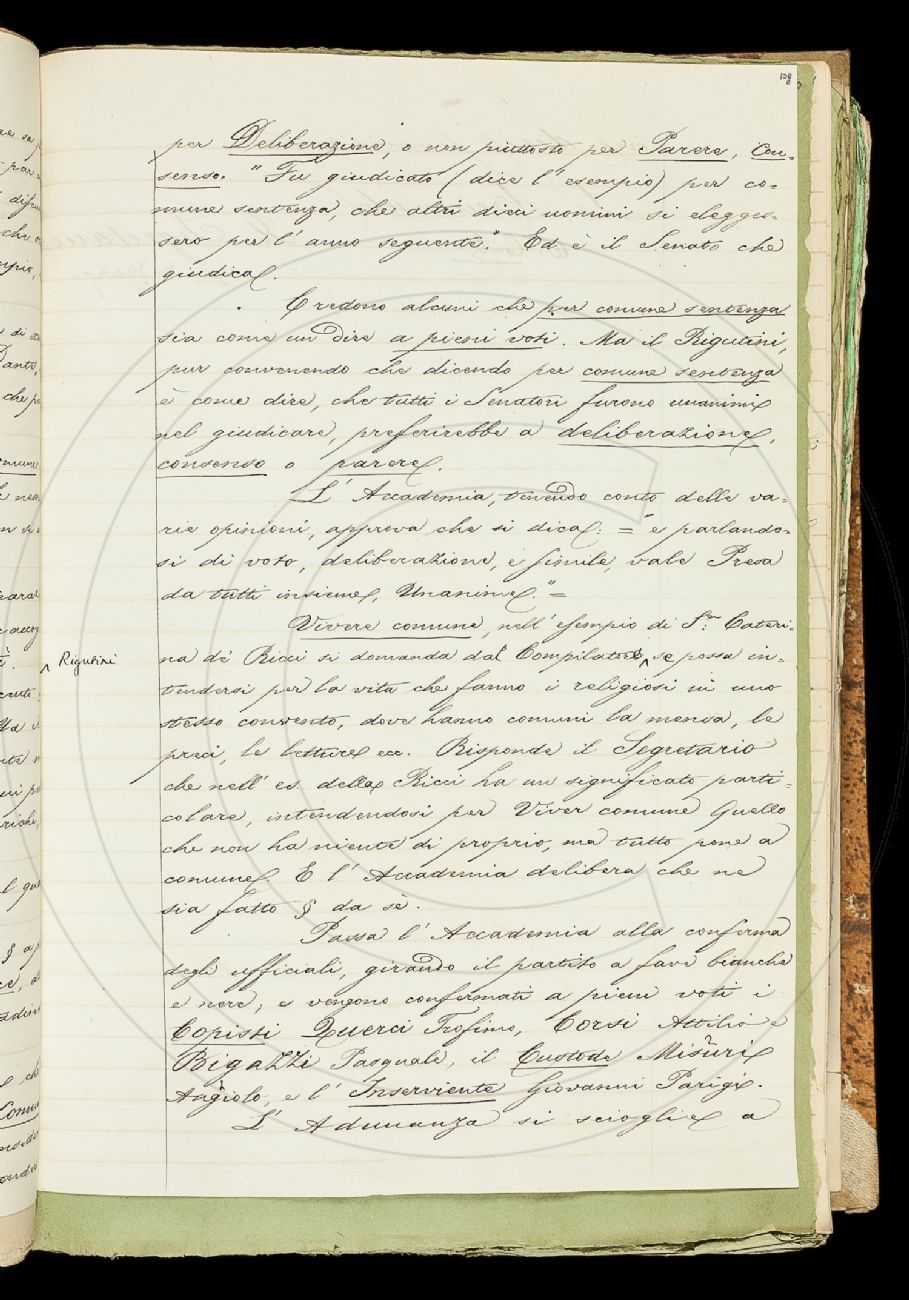 per Deliberazione, o non piuttosto per Parere, Con-
senso. "Fu giudicato (dice l'esempio) per co-
mune sentenza, che altri dieci uomini si elegges-
sero per l'anno seguente". Ed è il Senato che
giudica.
Credono alcuni che per comune sentenza
sia come un dire a pieni voti. Ma il Rigutini,
pur convenendo che dicendo per comune sentenza
è come dire, che tutti i Senatori furono unanimi
nel giudicare, preferirebbe a deliberazione,
consenso o parere.
L'Accademia, tenendo conto delle va-
rie opinioni, approva che si dica: = "e parlando-
si di voto, deliberazione, e simile, vale Presa
da tutti insieme, Unanime." =
Vivere comune, nell'esempio di S.ta Cateri-
na dè Ricci si domanda dal Compilatore, se possa in-
^ Rigutini
tendersi per la vita che fanno i religiosi in uno
stesso convento, dove hanno comuni la mensa, le
preci, le letture ecc. Risponde il Segretario
che nell'es. della Ricci ha un significato parti-
colare, intendendosi per Viver comune Quello
che non ha niente di proprio, ma tutto pone a
comune. E l'Accademia delibera che ne
sia fatto § da sè.
Passa l'Accademia alla conferma
degli ufficiali, girando il partito a fave bianche
e nere, e vengono confermati a pieni voti i
Copisti Querci Trofimo, Corsi Attilio e
Bigazzi Pasquale, il Custode Misuri
Angiolo, e l'Inserviente Giovanni Parigi.
L'Adunanza si scioglie a